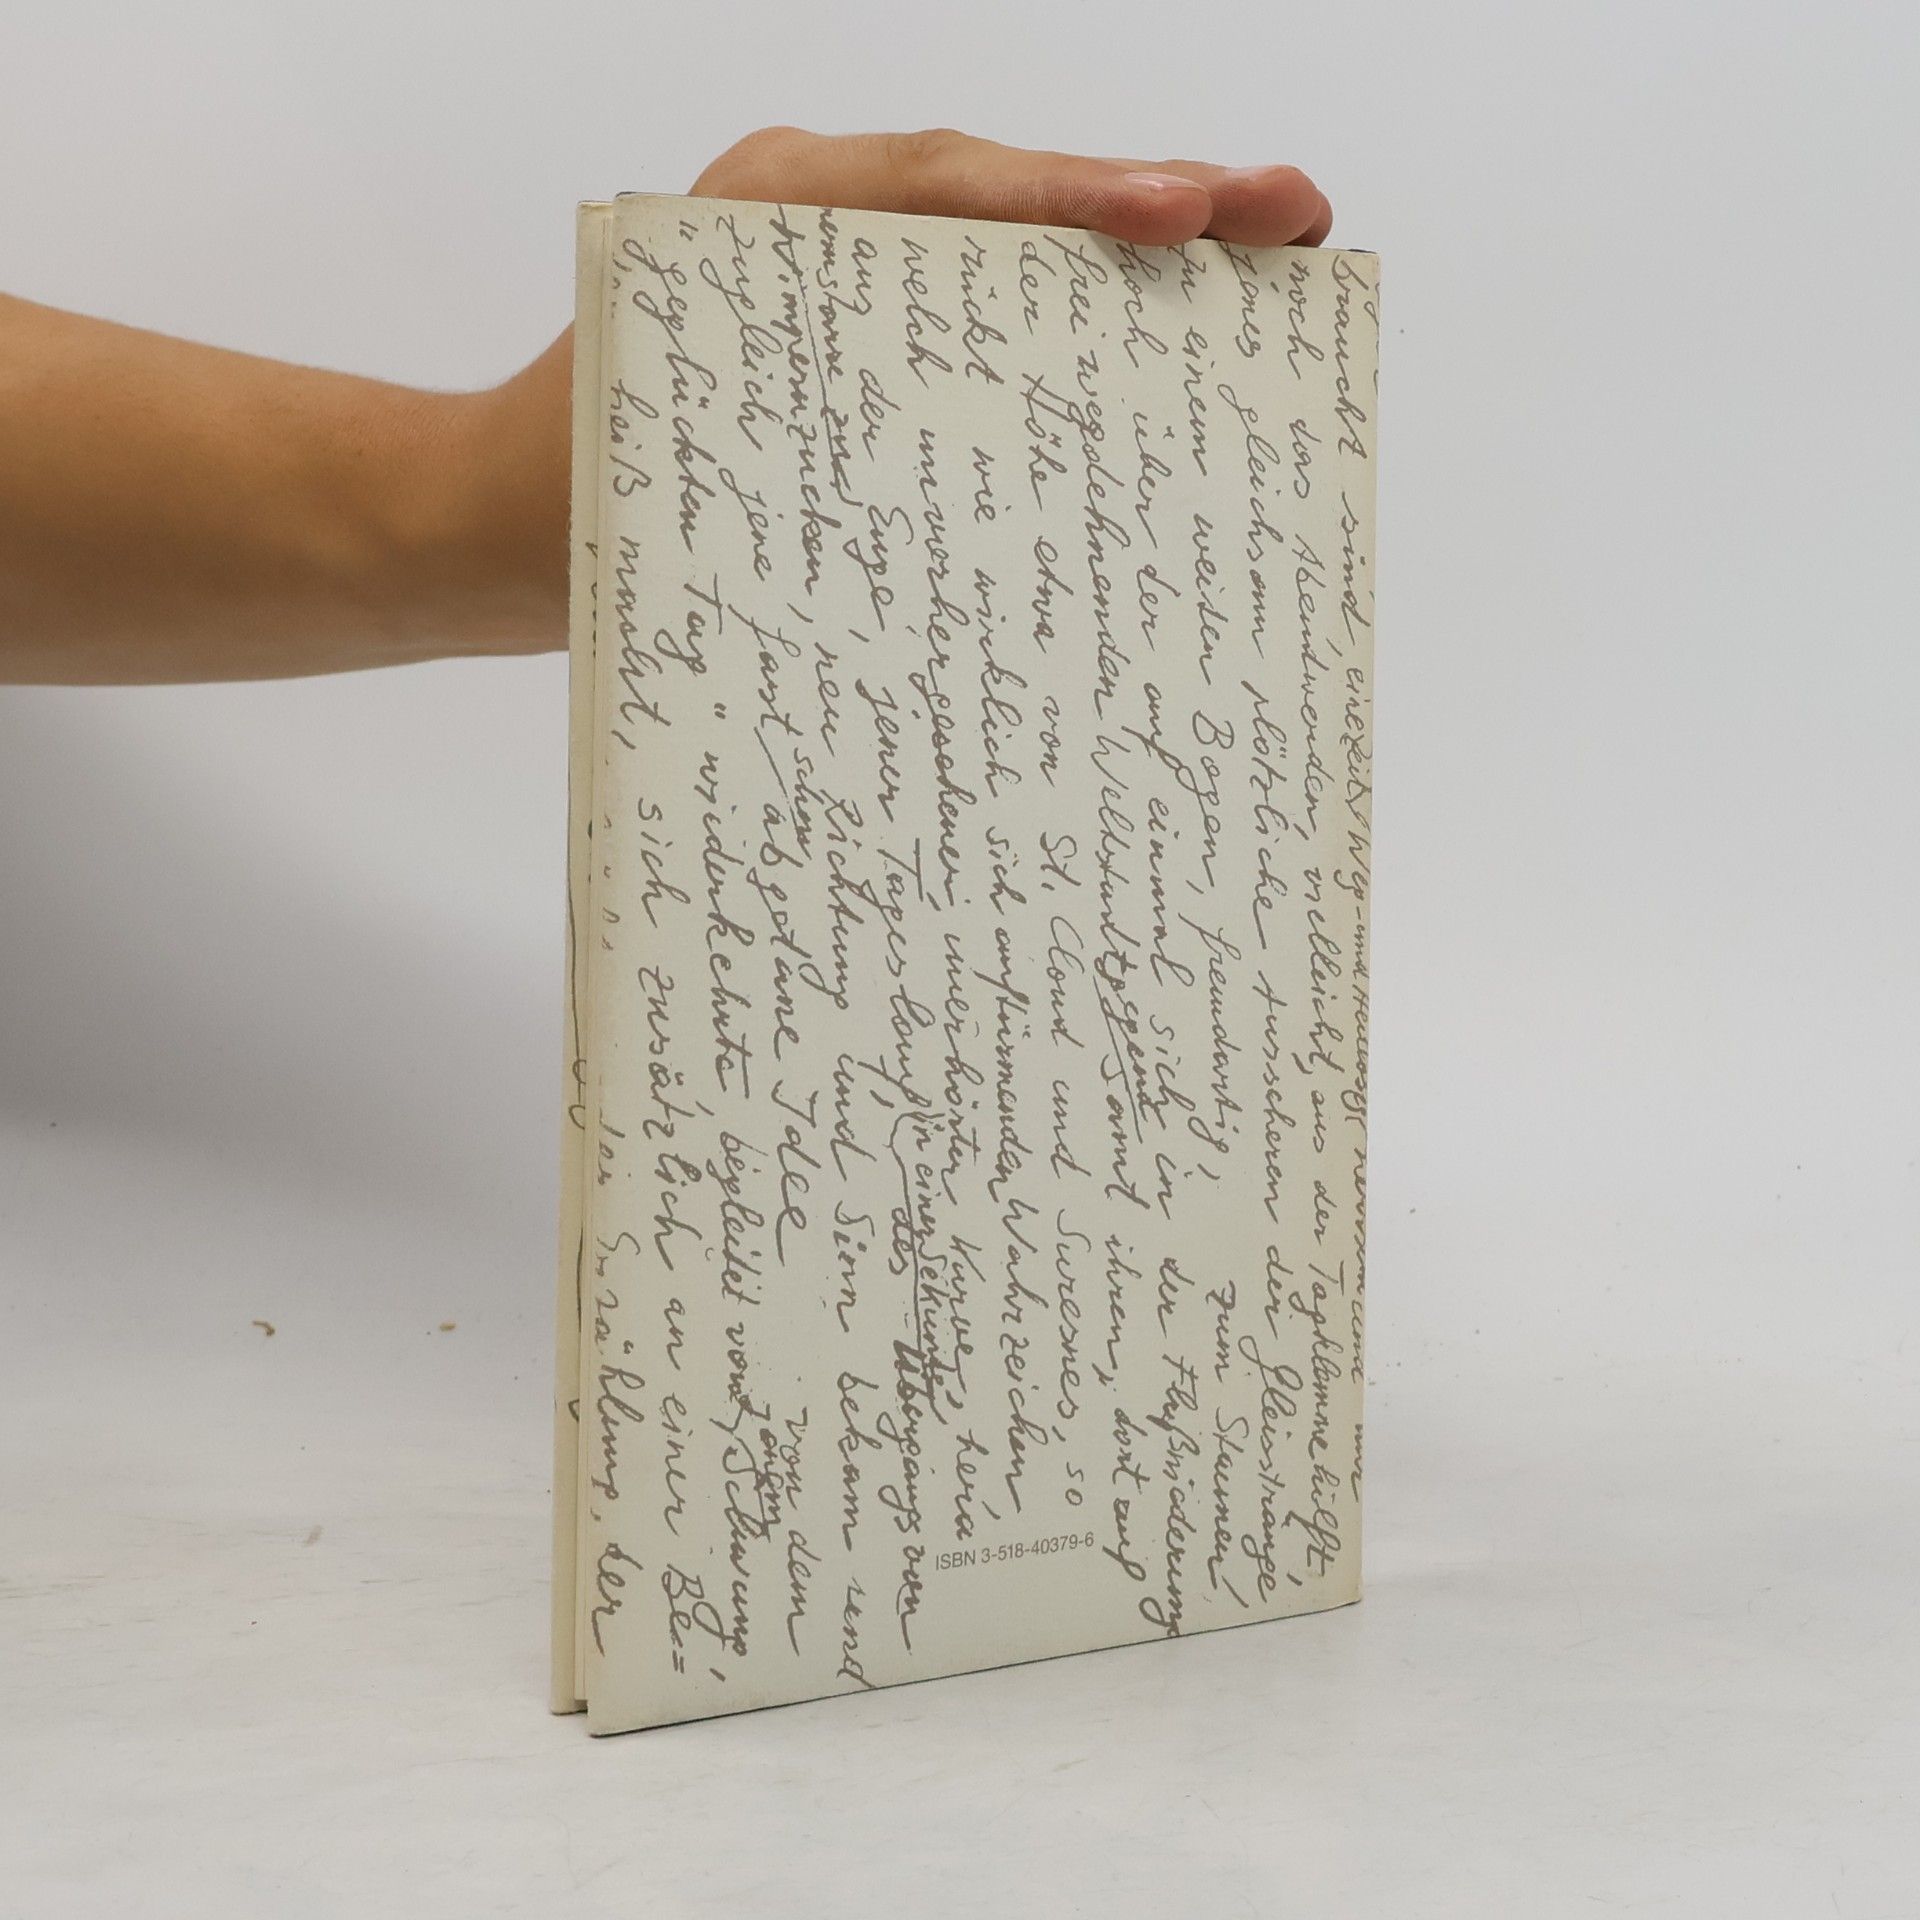 braucht sind, eine Zeit, Weg- und nur
noch das Abendwerden, vielleicht, aus der Tagklemme hilft,
jenes gleichsam plötzliche Ausscheren der Gleisstränge
zu einem weiten Bogen, fremdartig, zum Staunen,
hoch über der auf einmal sich in der Flußniederung
frei wegdehnenden Weltstadtgegend samt ihren, dort auf
der Höhe etwa von St. Cloud und Suresnes, so
rückt wie wirklich sich auftürmenden Wahrzeichen
welch unvorhergesehener, unerhörter Kurve, hera
in einer Sekunde
aus der Enge, jener Tageslauf, des Übergangs von
starre zu
Wimpernzucken, neu Richtung und Sinn bekam und
zugleich jene fast schon abgetane Idee von dem
"geglückten Tag" wiederkehrte, begleitet von jenem Schwung,
heiß macht, sich zusätzlich an einer Be=
Erzählung, der
ISBN 3-518-40379-6